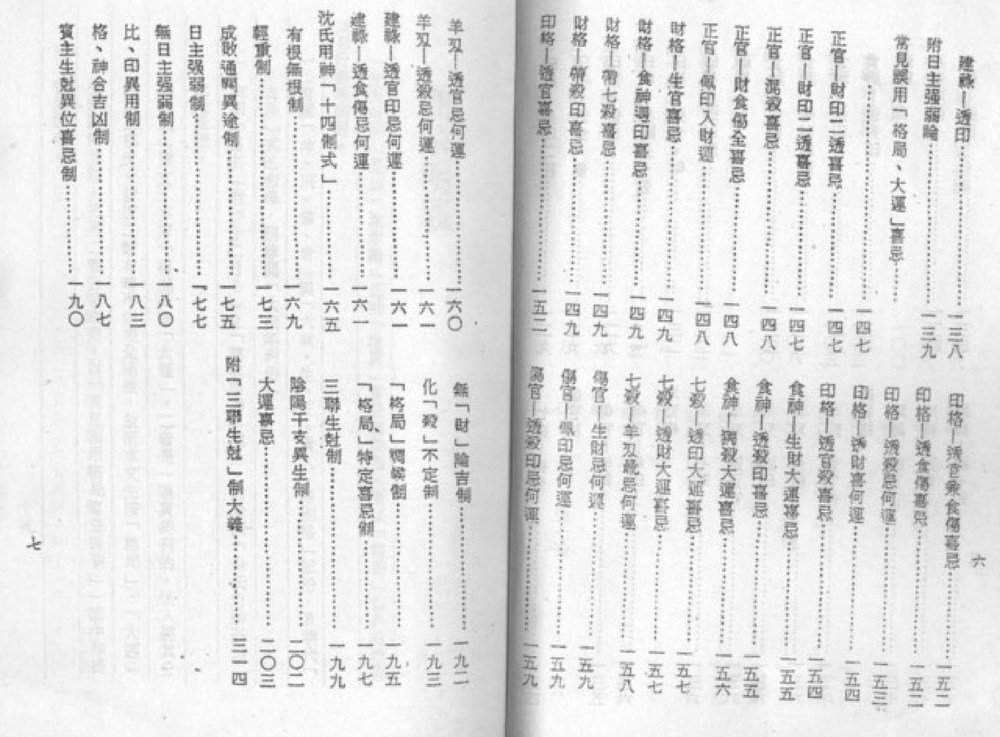 建祿—透印……一三八
附日主强弱論……一三九
常見誤用「格局、大運」喜忌……
……一四七
正官—財印二透喜忌……一四七
正官—財印二透喜忌……一四七
正官—混殺喜忌……一四八
正官—財食傷全喜忌……一四八
正官—佩印入財運……一四八
財格—生官喜忌……一四九
財格—食神遇印喜忌……一四九
財格—帶七殺喜忌……一四九
財格—帶殺印喜忌……一四九
印格—透官喜忌……一五二
印格—透官兼食傷喜忌……一五二
印格—透食傷喜忌……一五二
印格—透殺忌何運……一五三
印格—透財喜何運……一五四
印格—透官殺喜忌……一五四
食神—生財大運喜忌……一五五
食神—透殺印喜忌……一五五
食神—獨殺大運喜忌……一五六
七殺—透印大運喜忌……一五七
七殺—透財大運喜忌……一五七
七殺—羊刃最忌何運……一五八
傷官—生財忌何運……一五九
傷官—佩印忌何運……一五九
傷官—透殺印忌何運……一五九
六
羊刃—透官忌何運……一六〇
羊刃—透殺忌何運……一六一
建祿—透官印忌何運……一六一
建祿—透食傷忌何運……一六一
沈氏用神「十四制式」……一六五
有根無根制……一六九
輕重制……一七三
成敗通關異途制……一七五
日主强弱制……一七七
無日主强弱制……一八〇
比、印異用制……一八三
格、神合吉凶制……一八七
賓主生尅異位喜忌制……一九〇
無「財」險吉制……一九二
化「殺」不定制……一九三
「格局」調候制……一九五
「格局」特定喜忌制……一九七
三聯生尅制……一九九
陰陽干支異生制……二〇二
大運喜忌……二〇三
附「三聯生尅」制大義……三一四
七